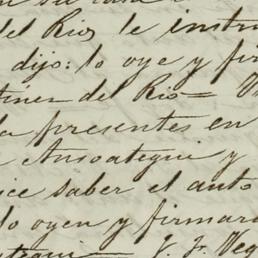 del Rio, le instru
dijo: lo oye y fir
tinez del Rio = V
la presentes en
Ansoategui y
ice saber el auto
lo oyen y firmaro